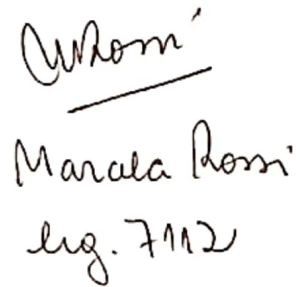 MRossi
Marcela Rossi
leg. 7112